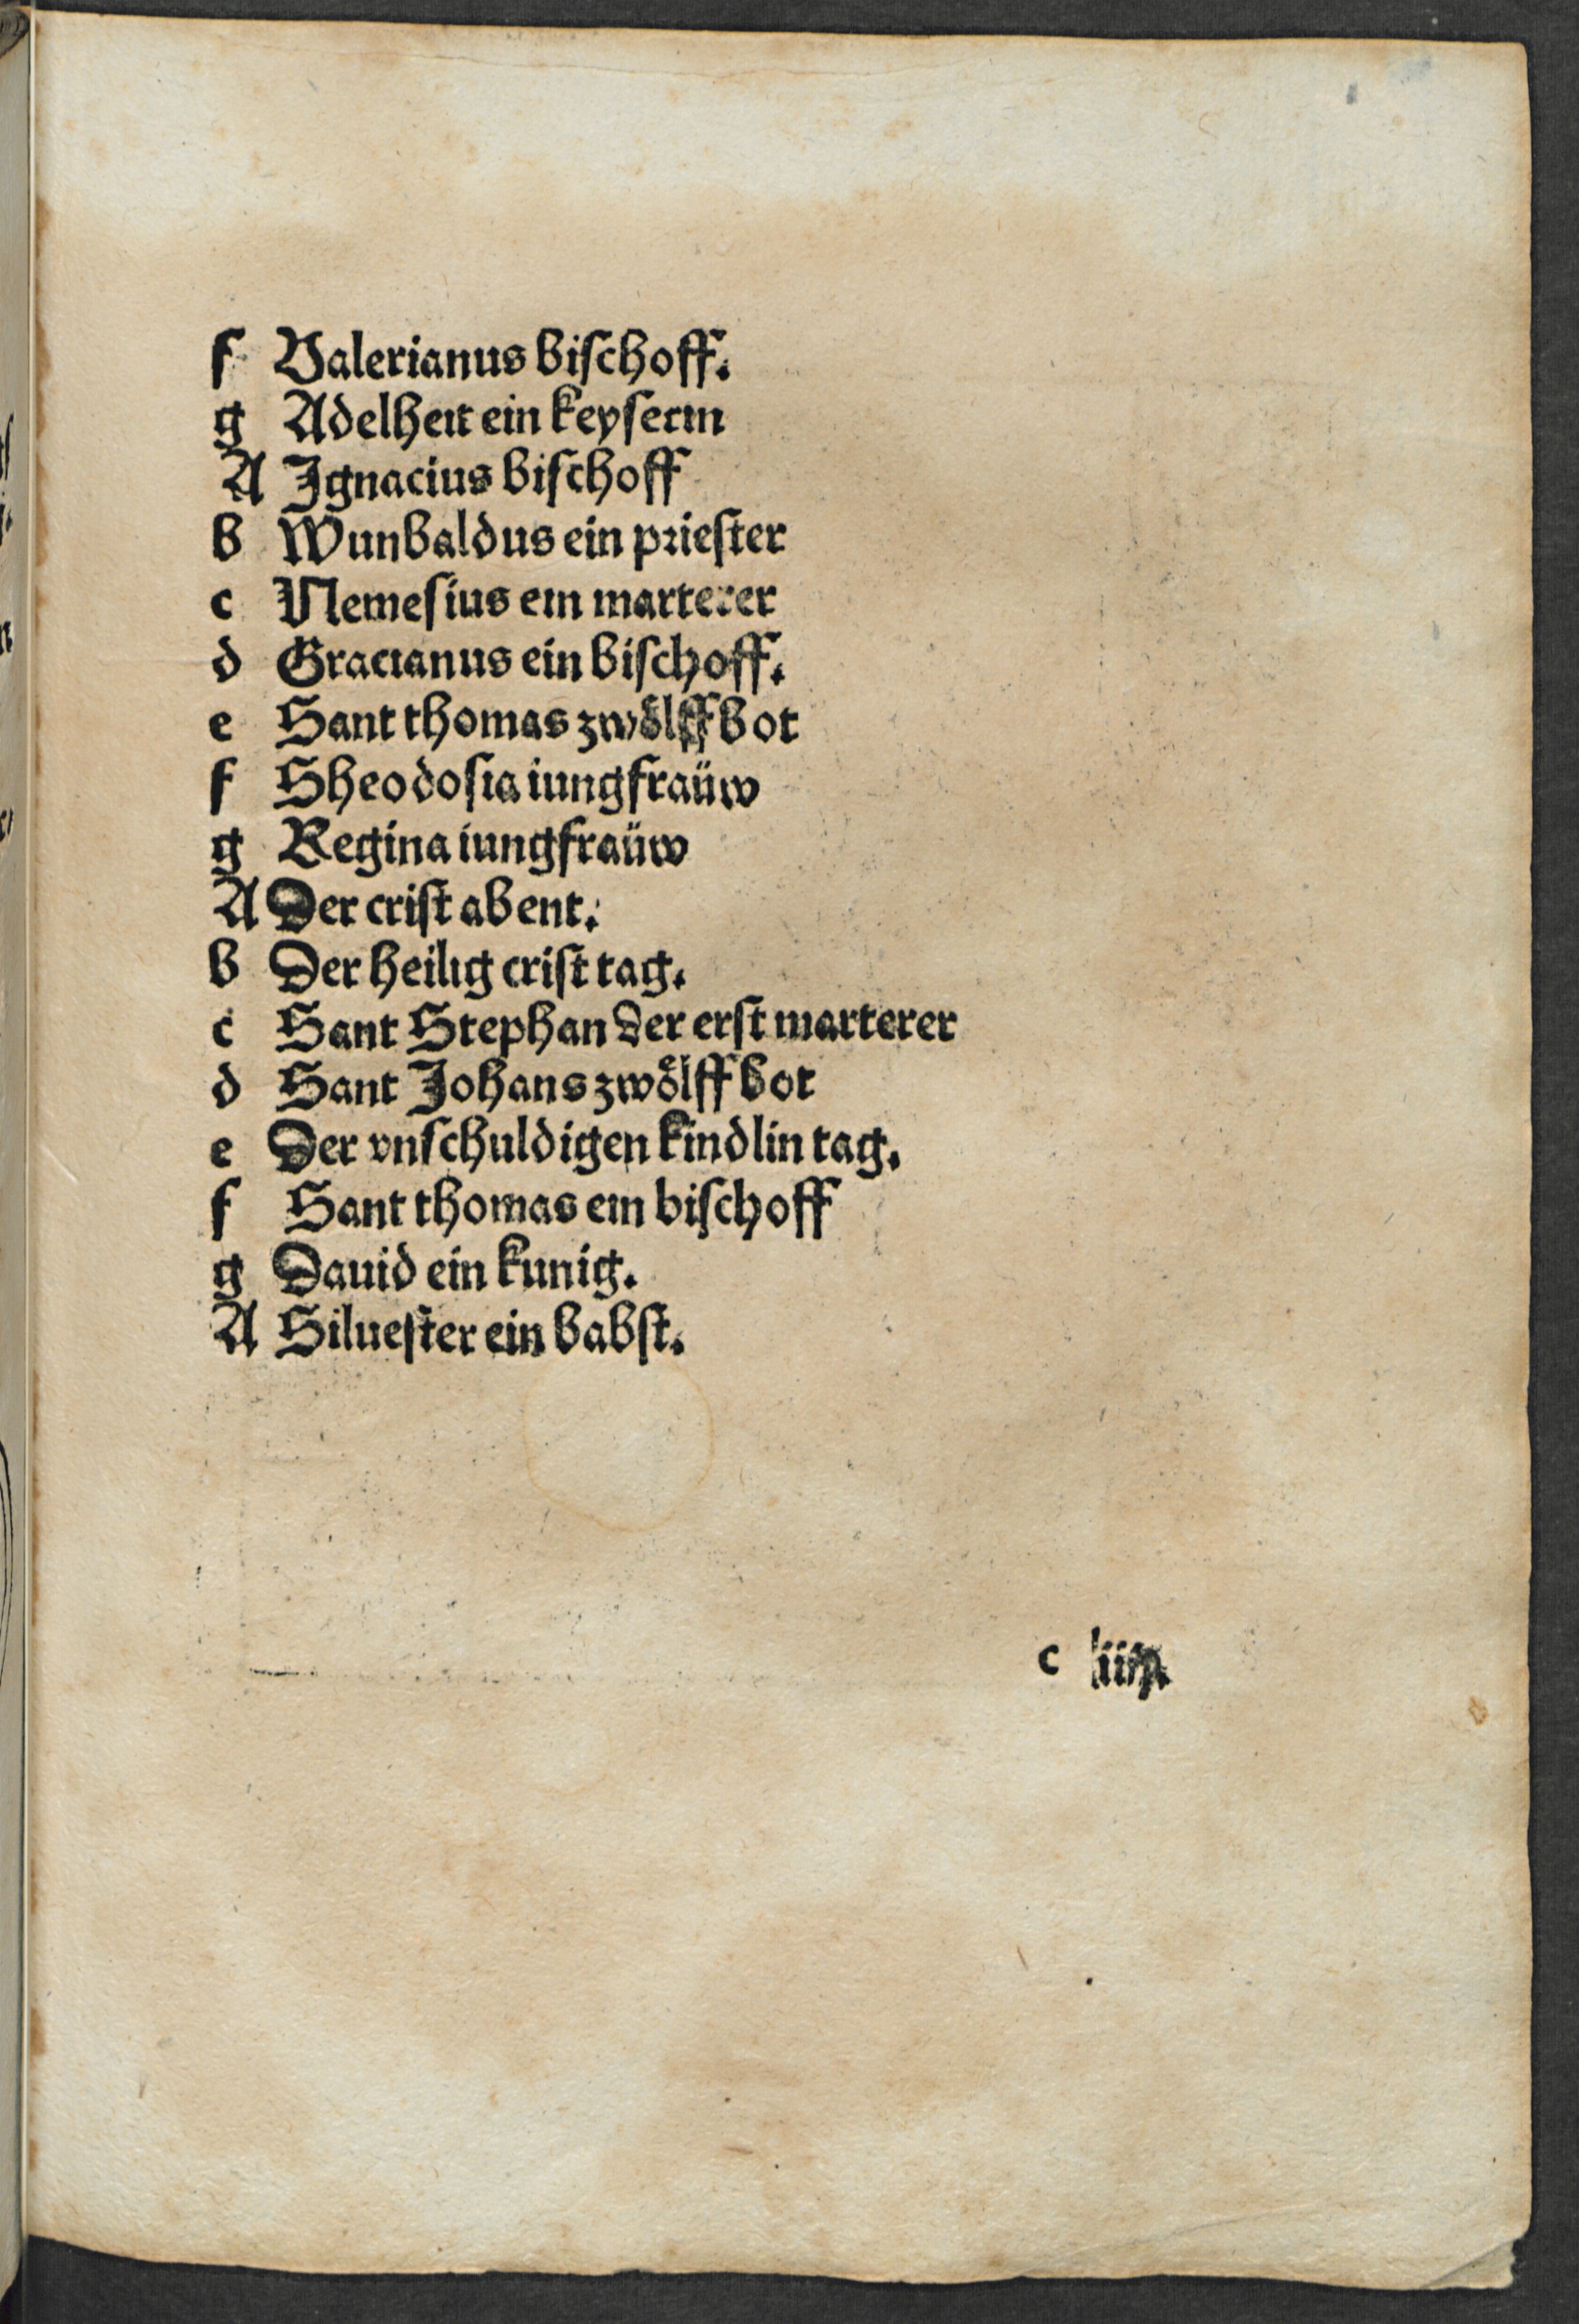 f Valerianus biſchoff.
g Adelheit ein keyſerin
A Ignacius biſchoff
b Wunbaldus ein prieſter
c Nemeſius ein marterer
d Gracianus ein biſchoff.
e Sant thomas zwoͤlffbot
f Sheodoſia iungfraüw
g Regina iungfraüw
A Der criſt abent.
b Der heilig criſt tag.
c Sant Stephan der erſt marterer
d Sant Johans zwoͤlff bot
e Der vnſchuldigen kindlin tag.
f Sant thomas ein biſchoff
g Dauid ein kunig.
A Silueſter ein babſt.
c